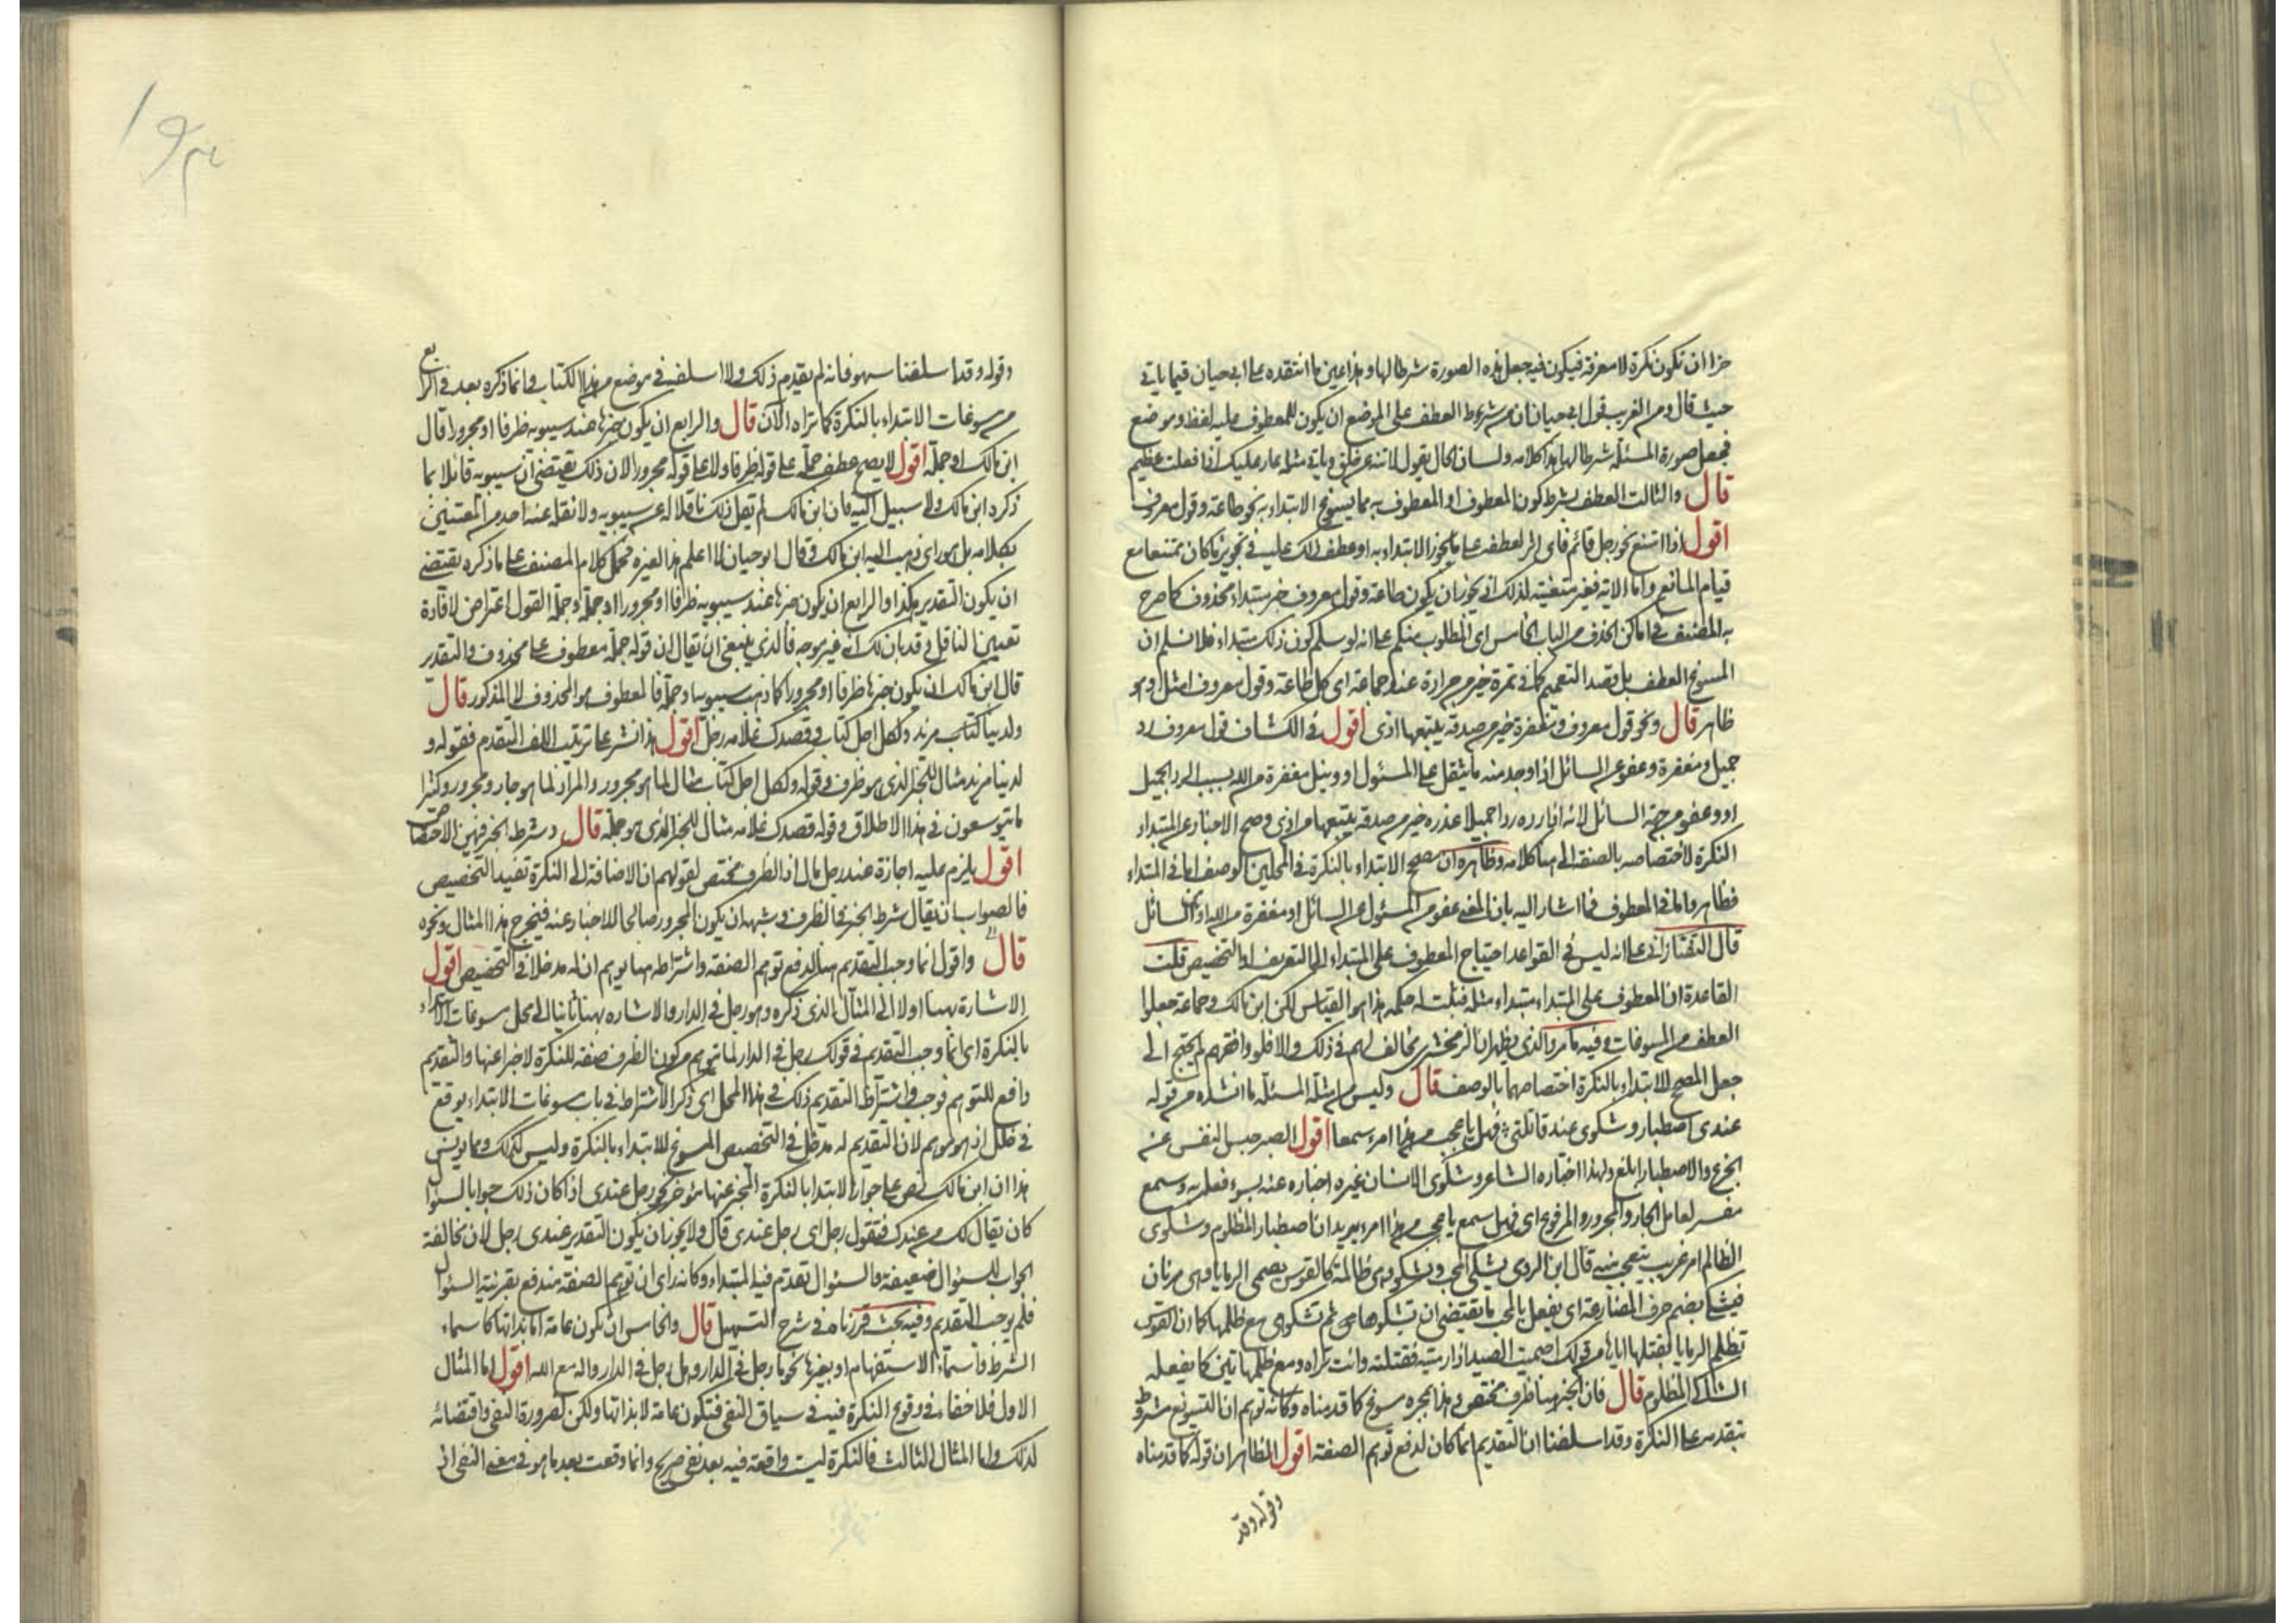 جزاان تكون نكرة لا معرفة فيكون فيه جعل هذه الصورة شرطا لها وهذا عين ما انتقده على ابي حيان فيما ياتي
حيث قال ومن الغريب قول ابي حيان ان من شرط العطف على الموضع ان يكون للمعطوف عليه لفظ وموضع
فجعل صورة المسئلة شرطا لها هذا كلامه ولسان الحال يقول لا تنه عن خلق وياتي مثله عار عليك اذا فعلت عظيم
قال والثالث العطف بشرط كون المعطوف او المعطوف به مما يسوغ الابتداء به نحو طاعة وقول معروف
اقول اذا امتنع نحو رجل قائم فاى اثر لعطف على ما يجوز الابتداء به او عطف ذلك عليه في تجويز ما كان ممتنعا مع
قيام المانع واما الاية فغير متعينة لذلك اذ يجوز ان يكون طاعة وقول معروف خبر مبتداء محذوف كما صرح
به المصنف في اماكن الحذف من الباب الخامس اى المطلوب منكم على انه لو سلم كون ذلك مبتداء فلا نسلم ان
المسوغ العطف بل قصد التعميم كما في تمرة خير من جرادة عند جماعة اى كل طاعة وقول معروف امثل وهو
ظاهر قال ونحو قول معروف ومغفرة خير من صدقة يتبعها اذى اقول في الكشاف قول معروف رد
جميل ومغفرة وعفو عن السائل اذا وجد منه ما يثقل على المسئول او ونيل مغفرة من الله بسبب الرد الجميل
او وعفو من جهة السائل لانه اذا رده ردا جميلا عذره خير من صدقة يتبعها اذى وصح الاخبار عن المبتداء
النكرة لاختصاصه بالصفة الى هنا كلامه وظاهره ان مصحح الابتداء بالنكرة في المحلين الوصف اما في المبتداء
فظاهر واما في المعطوف فما اشار اليه بان المعنى عفو من المسئول عن السائل او مغفرة من الله او من السائل
قال التفتازاني على انه ليس في القواعد احتياج المعطوف على المبتداء الى التعريف او التخصيص قلت
القاعدة ان المعطوف على المبتداء مبتداء مثله فيثبت له حكمه هذا هو القياس لكن ابن مالك وجماعة جعلوا
العطف من المسوغات وفيه ما مر والذى يظهر ان الزمخشرى مخالف لهم في ذلك والا فلو وافقهم لم يحتج الى
جعل المصحح للابتداء بالنكرة اختصاصها بالوصف قال وليس من امثلة المسئلة ما انشده من قوله
عندى اصطبار وشكوى عند قاتلتي فهل باعجب من هذا امرء سمعا اقول الصبر حبس النفس عن
الجزع والاصطبار ابلغ ولهذا اختاره الشاعر وشكوى الانسان غيره اخباره عنه بسوء فعله به وسمع
مفسر لعامل الجار والمجرور والمرفوع اى فهل سمع باعجب من هذا امرء يريد ان اصطبار المظلوم وشكوى
الظالم امر غريب يتعجب منه قال ابن الرومي يشكى المحب وتشكو وهى ظالمة كالقوس تصمى الرمايا وهى مرنان
فيشكى بضم حرف المضارعة اى يفعل بالمحب ما يقتضى ان يشكوها هى ثم تشكو هى مع ظلمها كما ان القوس
تظلم الرمايا بقتلها اياها من قولك اصميت الصيد اذا رميته فقتلته وانت تراه ومع ظلمها تئن كما يفعله
الشاكى المظلوم قال فان الخبر هنا ظرف مختص وهذا بمجرده مسوغ كما قدمناه وكانه توهم ان التسويغ مشروط
بتقدمه على النكرة وقد اسلفنا ان التقديم انما كان لدفع توهم الصفة اقول الظاهر ان قوله كما قدمناه
وقوله وقد
وقوله وقد اسلفنا سهو فانه لم يقدم ذلك ولا اسلفه في موضع من هذا الكتاب وانما ذكره بعد في الرابع
من مسوغات الابتداء بالنكرة كما تراه الآن قال والرابع ان يكون خبرها عند سيبويه ظرفا او مجرورا قال
ابن مالك او جملة اقول لا يصح عطف جملة على قوله ظرفا ولا على قوله مجرورا لان ذلك يقتضى ان سيبويه قائل بما
ذكره ابن مالك ولا سبيل اليه فان ابن مالك لم يقل ذلك ناقلا له عن سيبويه ولا نقله عنه احد من المعتنين
بكلامه بل هو راى ذهب اليه ابن مالك وقال ابو حيان لا اعلم هذا لغيره فحمل كلام المصنف على ما ذكره يقتضى
ان يكون التقدير هكذا والرابع ان يكون خبرها عند سيبويه ظرفا او مجرورا او جملة وجملة القول اعتراض لافادة
تعيين الناقل وقد بان لك انه غير موجه فالذى ينبغى ان يقال ان قوله جملة معطوف على محذوف والتقدير
قال ابن مالك ان يكون خبرها ظرفا او مجرورا كما ذهب سيبويه او جملة فالمعطوف هو المحذوف لا المذكور قال
ولدينا كتاب مزيد ولكل اجل كتاب وقصدك غلامه رجل اقول هذا نشر على ترتيب اللف المتقدم فقوله و
لدينا مزيد مثال للخبر الذى هو ظرف وقوله ولكل اجل كتاب مثال لما هو مجرور والمراد لما هو جار ومجرور وكثيرا
ما يتوسعون في هذا الاطلاق وقوله قصدك غلامه مثال للخبر الذى هو جملة قال وشرط الخبر فيهن الاختصاص
اقول يلزم عليه اجازة عند رجل مال اذ الظرف مختص لقولهم ان الاضافة الى النكرة تفيد التخصيص
فالصواب ان يقال شرط الخبر في الظرف وشبهه ان يكون المجرور صالحا للاخبار عنه فيخرج هذا المثال ونحوه
قال واقول انما وجب التقديم هنا لدفع توهم الصفة واشتراطه هنا يوهم ان له مدخلا في التخصيص اقول
الاشارة بهنا اولا الى المثال الذى ذكره وهو رجل في الدار والاشاره بهنا ثانيا الى محل مسوغات الابتداء
بالنكرة اى انما وجب التقديم في قولك رجل في الدار لما يتوهم من كون الظرف صفة للنكرة لا خبرا عنها والتقديم
دافع للتوهم فوجب واشتراط التقديم ذلك في هذا المحل اى ذكر الاشتراط في باب مسوغات الابتداء يوقع
في خلل اذ هو موهم لان التقديم له مدخل في التخصيص المسوغ للابتداء بالنكرة وليس كذلك ومما يونس
هذا ان ابن مالك نص على جواز الابتدا بالنكرة المخبر عنها بمؤخر كرجل عندى اذا كان ذلك جوابا لسؤال
كان يقال لك من عندك فتقول رجل اى رجل عندى قال ولا يجوز ان يكون التقدير عندى رجل لان مخالفة
الجواب للسؤال ضعيفة والسؤال تقدم فيه المبتداء وكانه راى ان توهم الصفة مندفع بقرينة السؤال
فلم يوجب التقديم وفيه بحث قررناه في شرح التسهيل قال والخامس ان تكون عامة اما بذاتها كاسماء
الشرط واسماء الاستفهام او بغيرها نحو ما رجل في الدار وهل رجل في الدار واله مع الله اقول اما المثال
الاول فلا خفاء في وقوع النكرة فيه في سياق النفى فتكون عامة لا بذاتها ولكن لضرورة النفى واقتضائه
لذلك واما المثال الثالث فالنكرة ليست واقعة فيه بعد نفى صريح وانما وقعت بعد ما هو في معنى النفى اذ